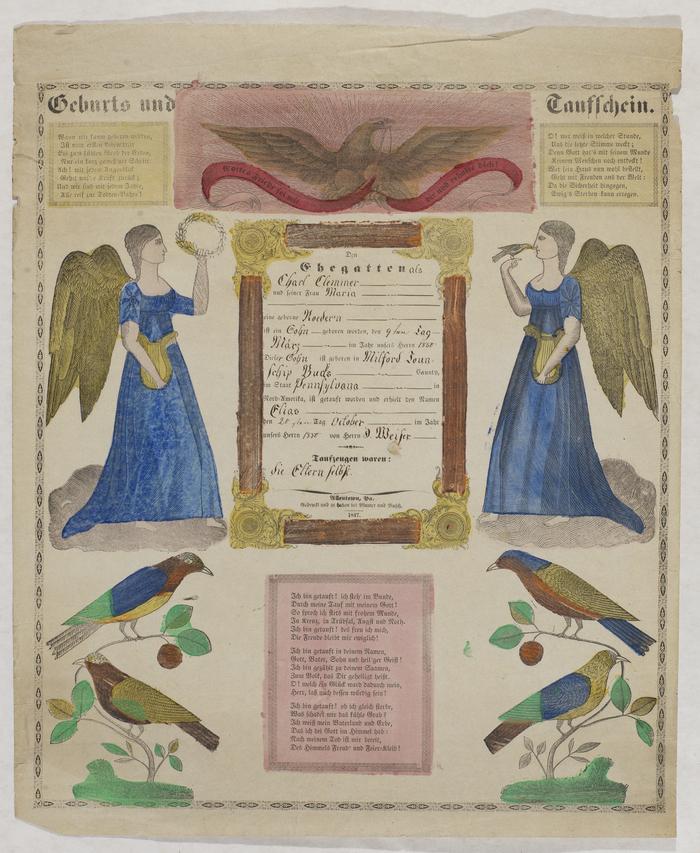 Geburts und Taufschein.
Wann wir kaum geboren werden,
Ist vom ersten Lebenstritt
Bis zum kühlen Grab der Erden,
Nur ein kurz gemeß'ner Schritt.
Ach! mit jedem Augenblick
Gehet unsre Kraft zurück;
Und wir sind mit jedem Jahre,
Alle reif zur Todten-Bahre!
Gottes Gnade sey mit
dir und erhalte dich!
O! wer weiß in welcher Stunde,
Uns die letzte Stimme weckt;
Denn Gott hat's mit seinem Munde
Keinem Menschen noch entdeckt!
Wer sein Haus nun wohl bestellt,
Geht mit Freuden aus der Welt:
Da die Sicherheit hingegen,
Ewig's Sterben kann erregen.
Den
Ehegatten als
Charl Clemmer
und seiner Frau Maria
eine geborne Roedern
ist ein Sohn geboren worden, den 9ten Tag
März im Jahr unsers Herrn 1838
Dieser Sohn ist geboren in Milford Toun-
schip Bucks Caunty,
im Staat Pennsylvana in
Nord-Amerika, ist getauft worden und erhielt den Namen
Elias
den 28sten Tag October im Jahr
unsers Herrn 1838 von Herrn D. Weiser
Taufzeugen waren:
die Eltern selbst.
Allentown, Pa.
Gedruckt und zu haben bei Blumer und Busch.
1847.
Ich bin getauft! ich steh' im Bunde,
Durch meine Tauf mit meinem Gott!
So sprech ich stets mit frohem Munde,
In Kreuz, in Trübsal, Angst und Noth.
Ich bin getauft! deß freu ich mich,
Die Freude bleibt mir ewiglich!
Ich bin getauft in deinem Namen,
Gott, Vater, Sohn und heil'ger Geist!
Ich bin gezählt zu deinem Saamen,
Zum Volk, das Dir geheiligt heißt.
O! welch ein Glück ward dadurch mein,
Herr, laß mich dessen würdig sein!
Ich bin getauft! ob ich gleich sterbe,
Was schadet mir das kühle Grab?
Ich weiß mein Vaterland und Erbe,
Das ich bei Gott im Himmel hab:
Nach meinem Tod ist mir bereit,
Des Himmels Freud' und Feier-Kleid!